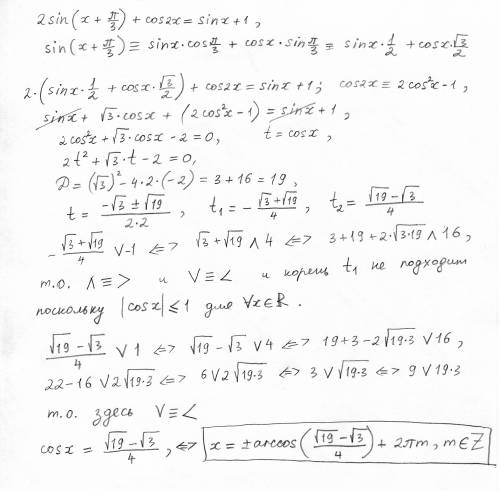 2sin(x + π/3) + cos2x = sinx + 1 ,
sin(x + π/3) ≡ sinx·cos π/3 + cosx·sin π/3 ≡ sinx·1/2 + cosx·√3/2
2·(sinx·1/2 + cosx·√3/2) + cos2x = sinx + 1 ; cos2x ≡ 2cos²x - 1 ,
sinx + √3·cosx + (2cos²x - 1) = sinx + 1 ,
2cos²x + √3·cosx - 2 = 0, t = cosx ,
2t² + √3·t - 2 = 0,
D = (√3)² - 4·2·(-2) = 3 + 16 = 19 ,
t = (-√3 ± √19)/(2·2) , t₁ = -(√3 + √19)/4 , t₂ = (√19 - √3)/4
-(√3 + √19)/4 ∨ -1 <=> √3 + √19 ∧ 4 <=> 3 + 19 + 2·√(3·19) ∧ 16 ,
т.о. ∧ ≡ > и ∨ ≡ < и корень t₁ не подходит
поскольку |cosx| ≤ 1 для ∀x∈R .
(√19 - √3)/4 ∨ 1 <=> √19 - √3 ∨ 4 <=> 19 + 3 - 2√(19·3) ∨ 16 ,
22 - 16 ∨ 2√(19·3) <=> 6 ∨ 2√(19·3) <=> 3 ∨ √(19·3) <=> 9 ∨ 19·3
т.о. здесь ∨ ≡ <
cosx = (√19 - √3)/4 , <=> x = ±arccos((√19 - √3)/4) + 2πm , m∈Z